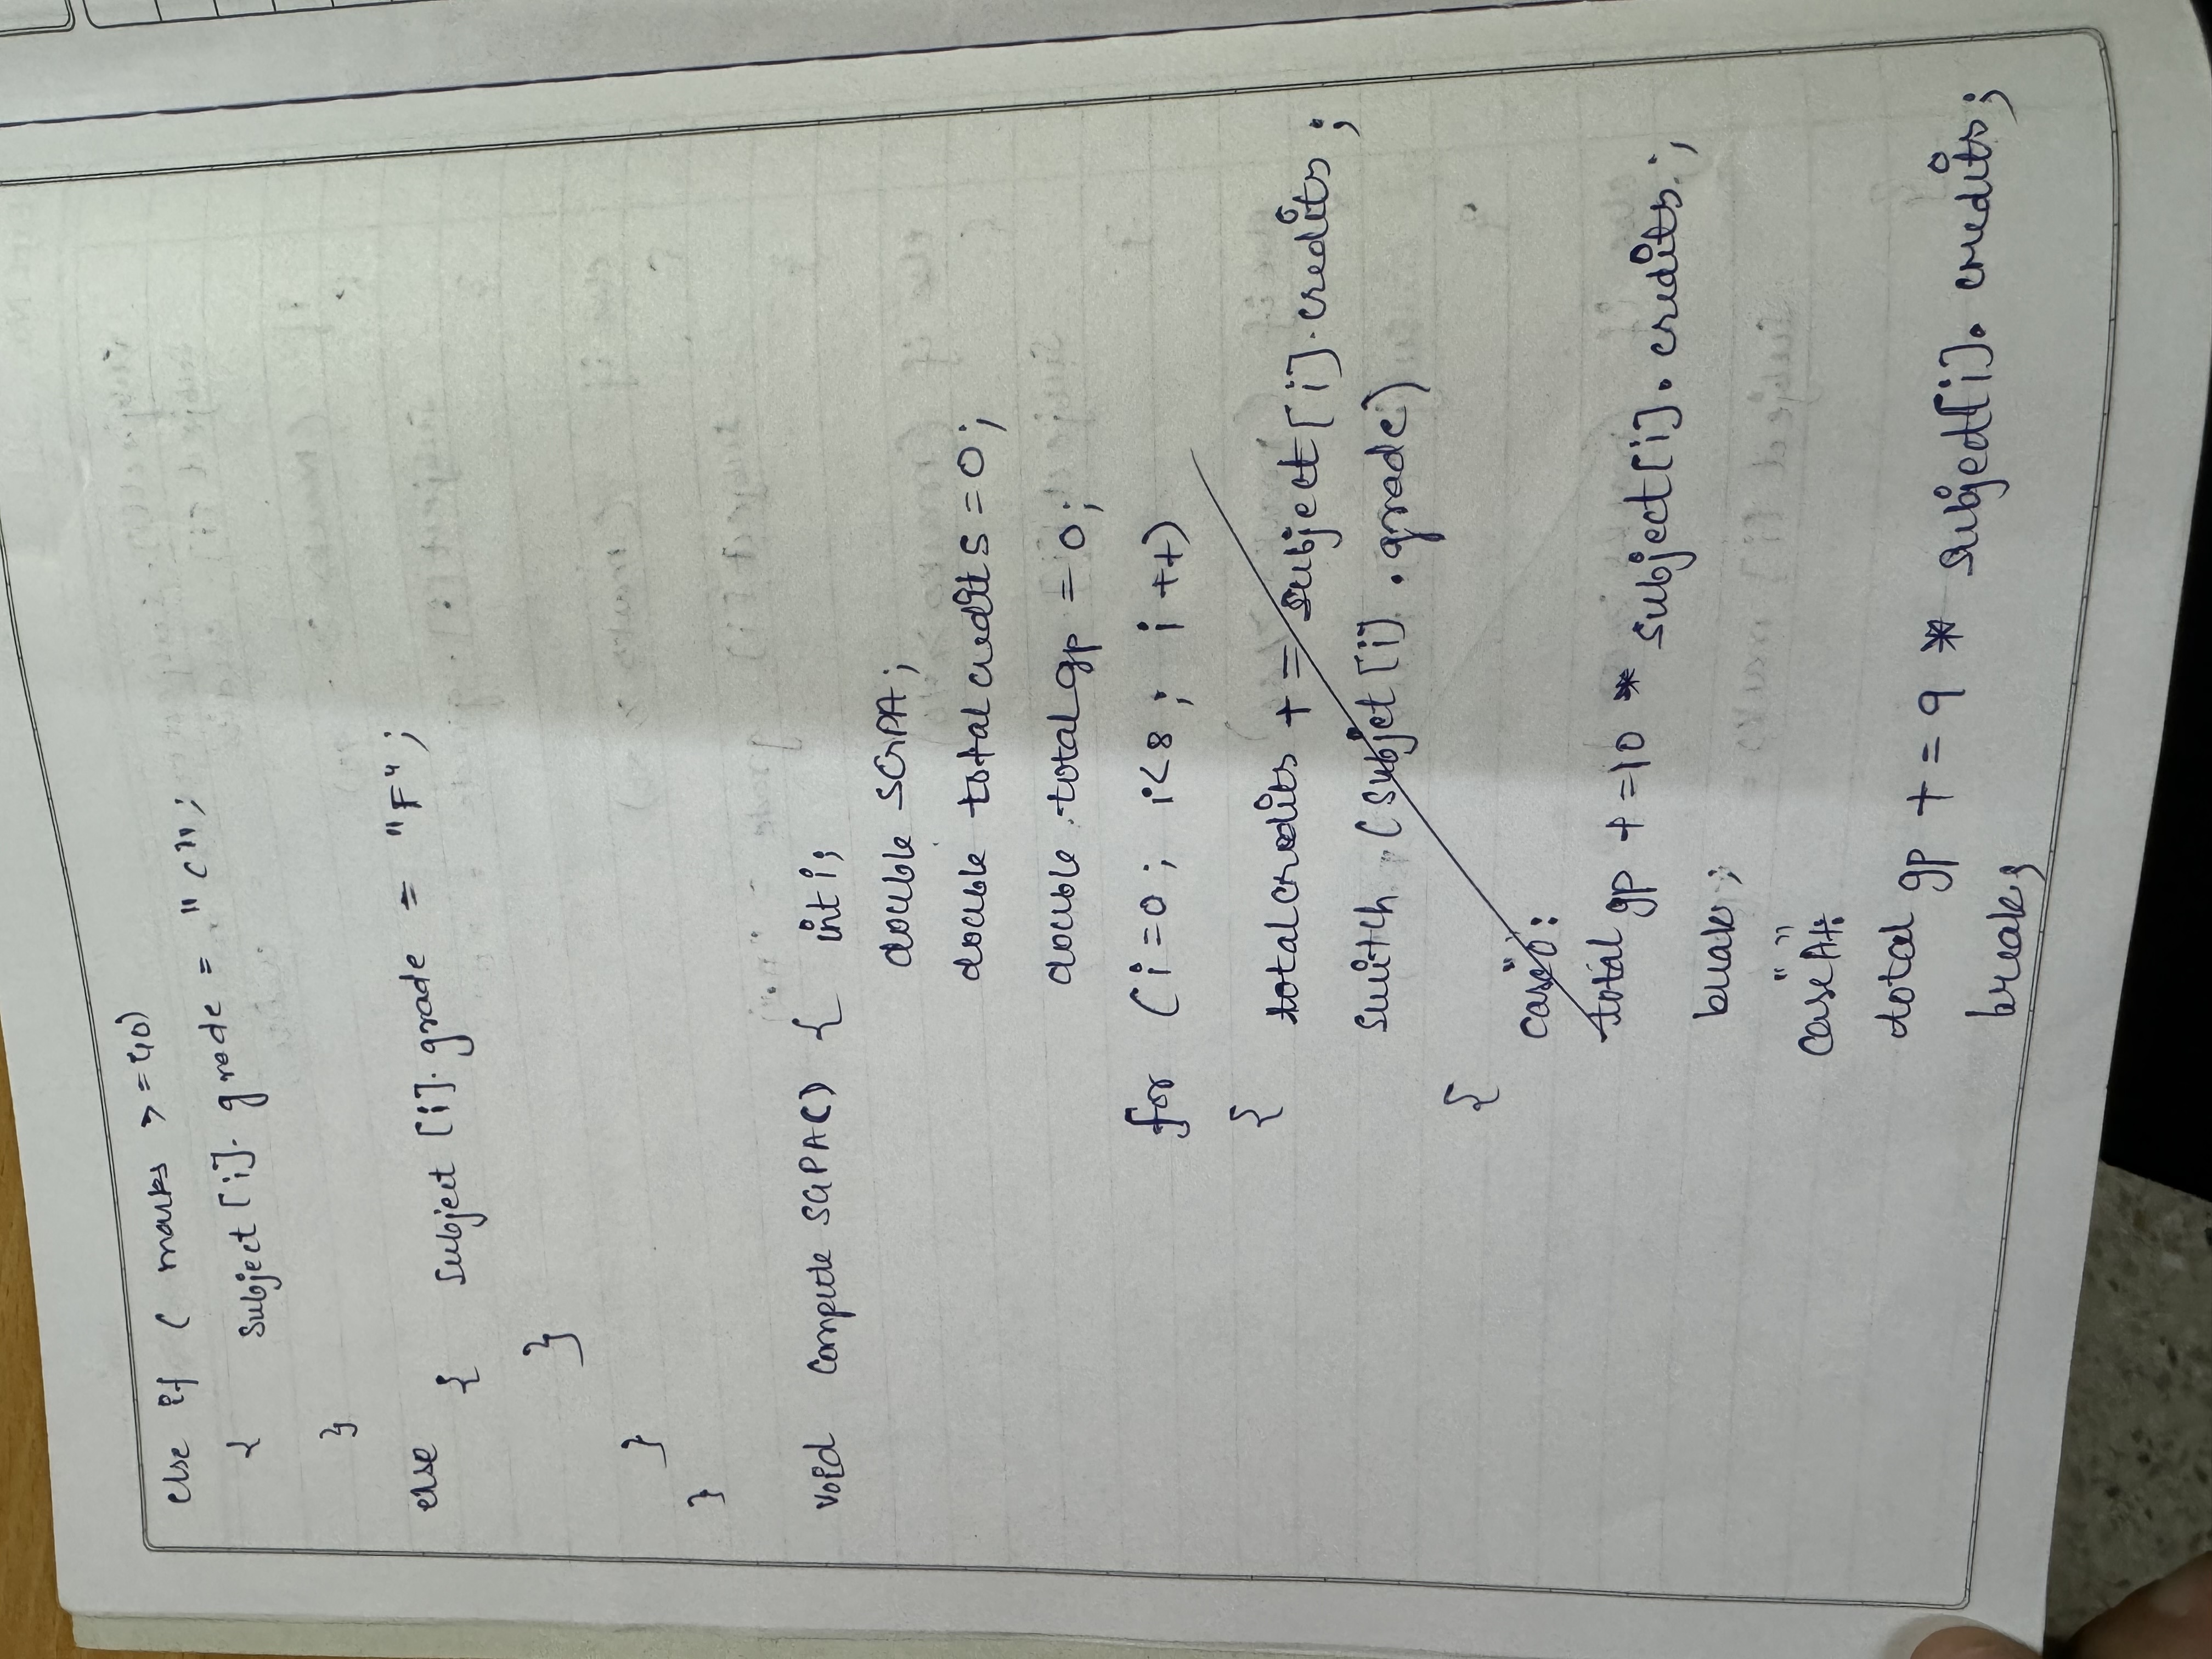 else if ( marks >=40)
{ Subject [i]. grade = "C";
}
else
{ Subject [i]. grade = "F";
}
}
}
void Compute SGPA() { int i;
double SGPA;
double total credits = 0;
double total gp = 0;
for (i=0; i<8; i++)
{ total credits += subject[i].credits;
switch (subjet [i] .grade)
{
case "O":
total gp +=10 * subject[i]. credits;
break;
case "A+":
total gp += 9 * subject[i]. credits;
break;